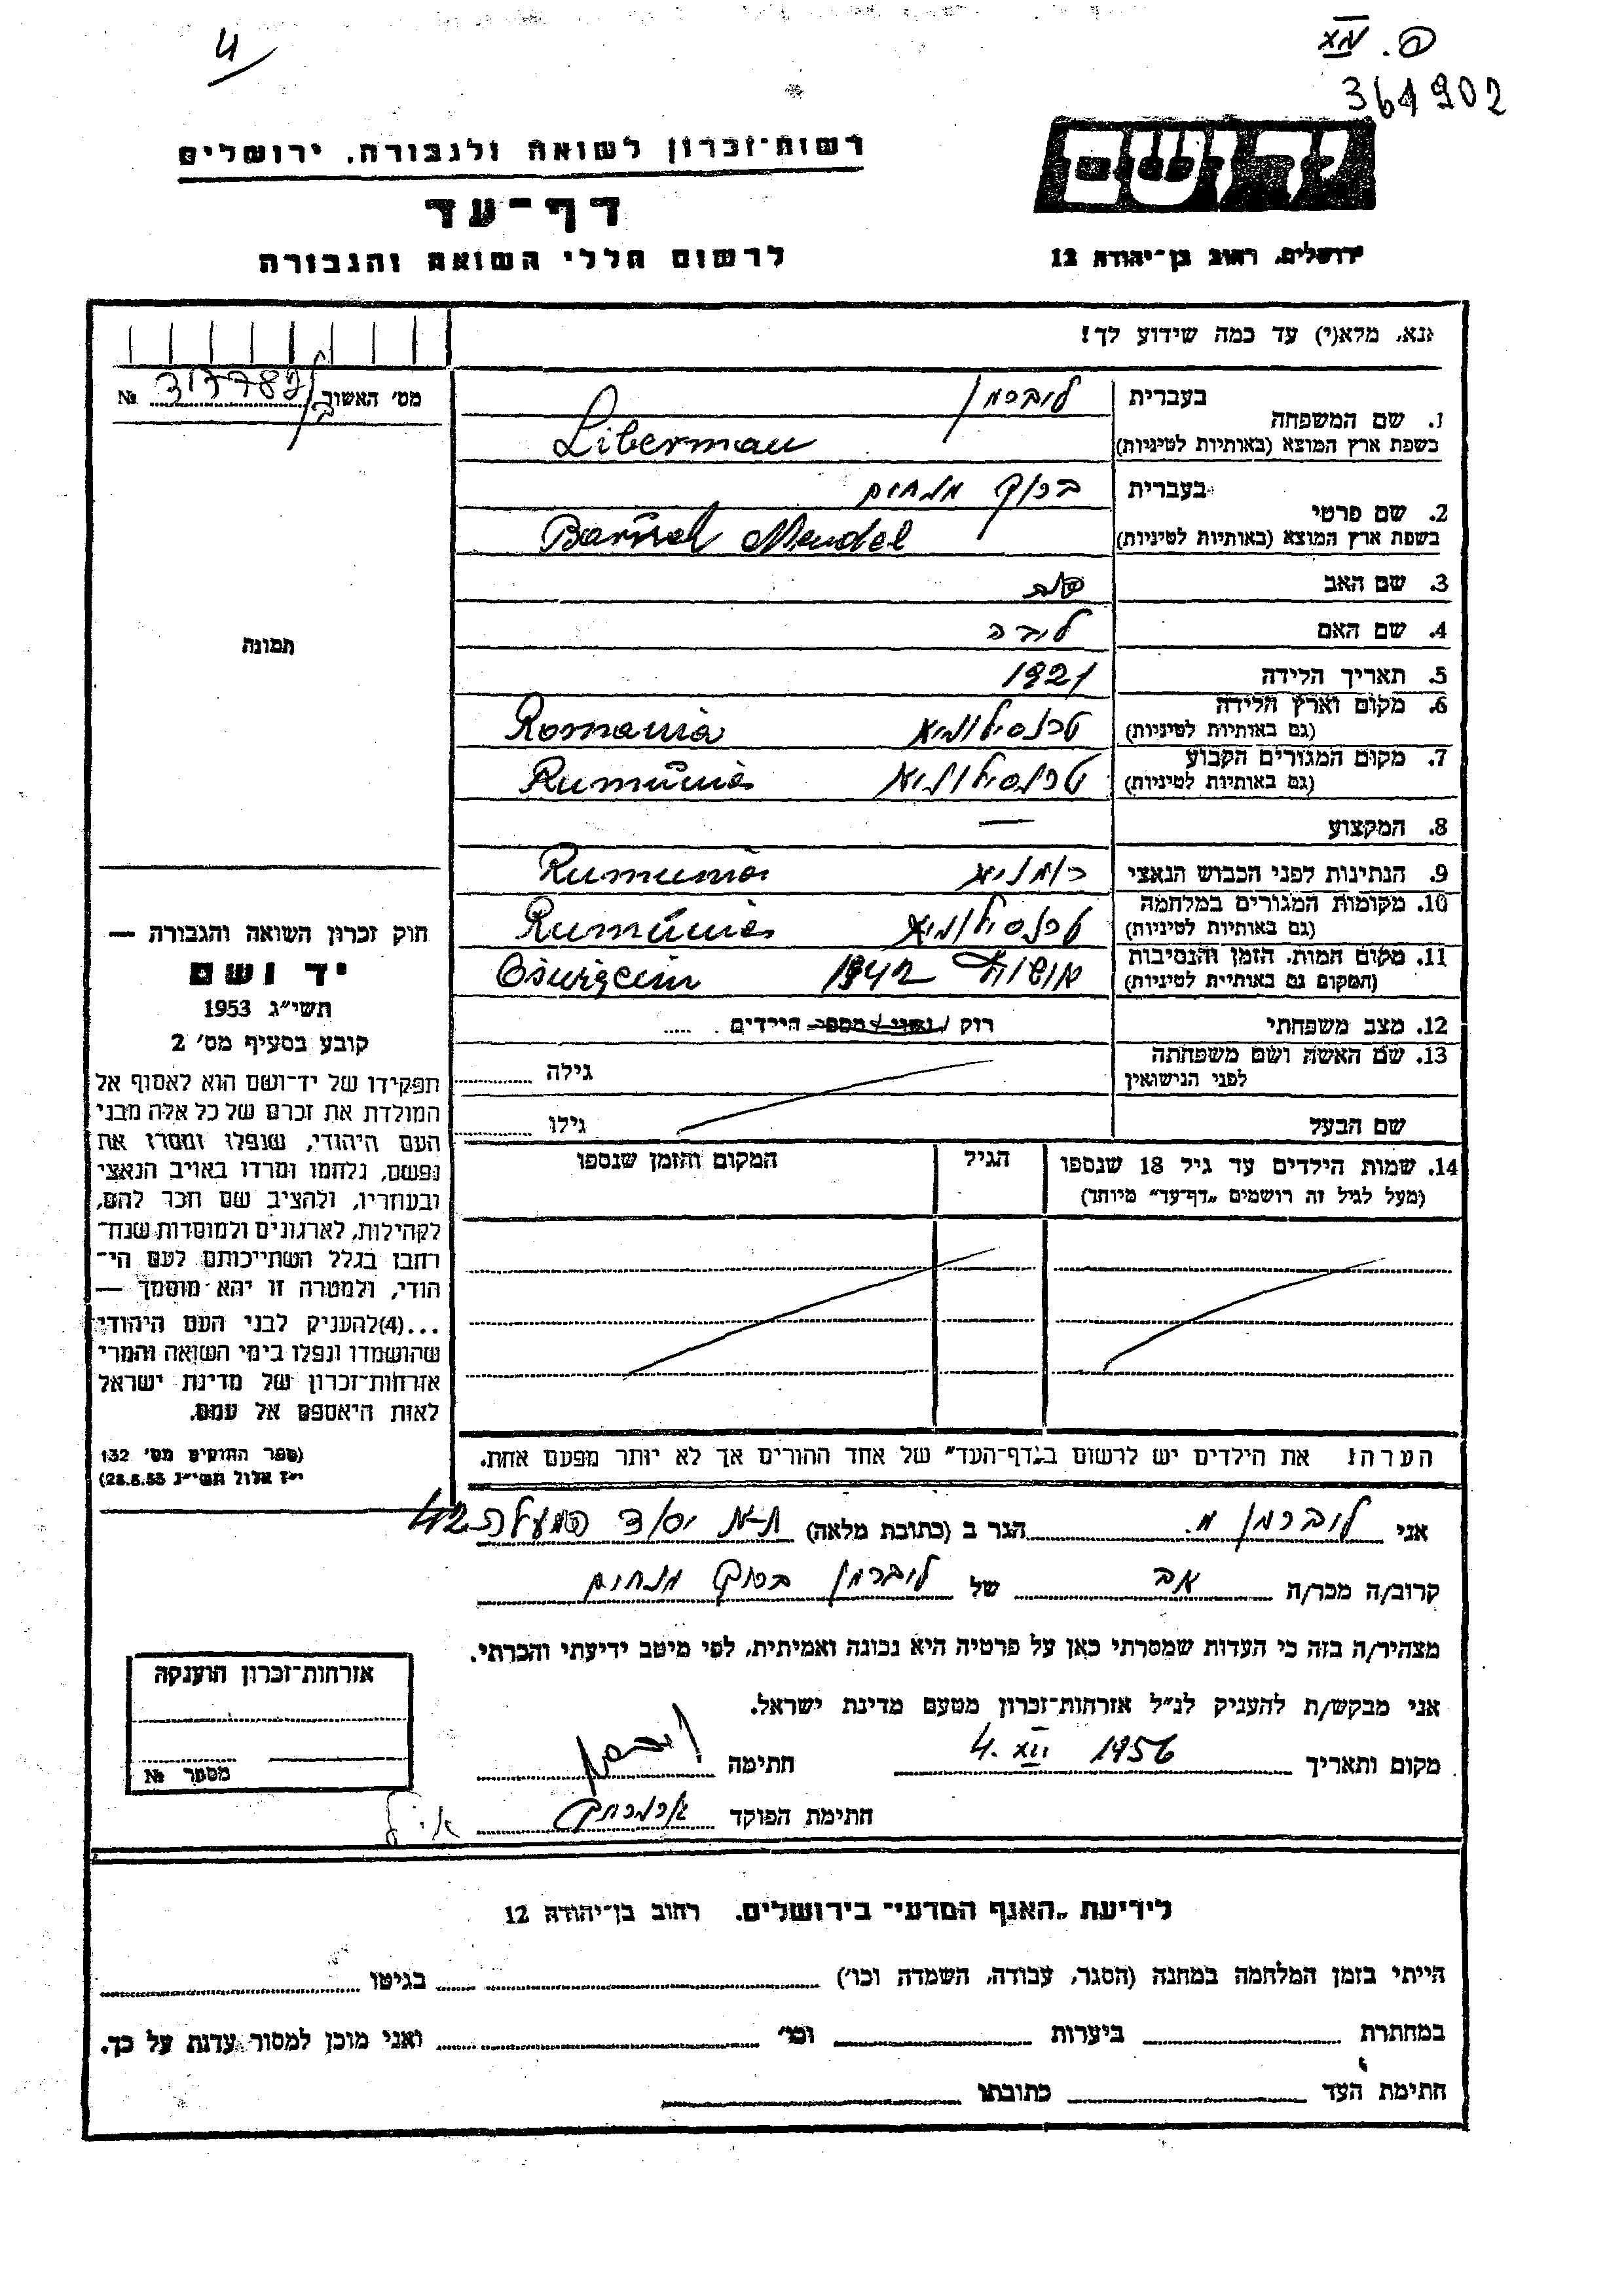 4
364902
רשות־זכרון לשואה ולגבורה, ירושלים
דף־עד
לרשום חללי השואה והגבורה
יד ושם
ירושלים, רחוב בן־יהודה 12
נא, מלא(י) עד כמה שידוע לך!
מס׳ האשור № 317782
1. שם המשפחה
בעברית ליברמן
בשפת ארץ המוצא (באותיות לטיניות) Liberman
2. שם פרטי
בעברית ברוך מנחום
בשפת ארץ המוצא (באותיות לטיניות) Mendel
3. שם האב
4. שם האם ליבה
5. תאריך הלידה 1921
6. מקום וארץ הלידה
(גם באותיות לטיניות) טרנסילוניא Romania
7. מקום המגורים הקבוע
(גם באותיות לטיניות) טרנסילוניא Rumunia
8. המקצוע —
9. הנתינות לפני הכבוש הנאצי רומניא Rumunia
10. מקומות המגורים במלחמה
(גם באותיות לטיניות) טרנסילוניא Rumunia
11. מקום המות, הזמן והנסיבות
(המקום גם באותיית לטיניות) 1942 Oswięcim
12. מצב משפחתי רוק / נשוי / מספר הילדים
13. שם האשה ושם משפחתה
לפני הנישואין גילה
שם הבעל גילו
14. שמות הילדים עד גיל 18 שנספו
(מעל לגיל זה רושמים „דף־עד״ מיוחד)
הגיל
המקום והזמן שנספו
הערה: את הילדים יש לרשום ב„דף־העד״ של אחד ההורים אך לא יותר מפעם אחת.
תמונה
חוק זכרון השואה והגבורה —
יד ושם
תשי״ג 1953
קובע בסעיף מס׳ 2
תפקידו של יד־ושם הוא לאסוף אל
המולדת את זכרם של כל אלה מבני
העם היהודי, שנפלו ומסרו את
נפשם, נלחמו ומרדו באויב הנאצי
ובעוזריו, ולהציב שם וזכר להם,
לקהילות, לארגונים ולמוסדות שנח־
רבו בגלל השתייכותם לעם הי־
הודי, ולמטרה זו יהא מוסמך —
...(4) להעניק לבני העם היהודי
שהושמדו ונפלו בימי השואה והמרי
אזרחות־זכרון של מדינת ישראל
לאות היאספם אל עמם.
(ספר החוקים מס׳ 132
י״ז אלול תשי״ג 28.8.53)
אני ליברמן מ. הגר ב (כתובת מלאה) ת–א יסוד המעלה 42
קרוב/ה מכר/ה אב של ליברמן ברוך מנחום
מצהיר/ה בזה כי העדות שמסרתי כאן על פרטיה היא נכונה ואמיתית, לפי מיטב ידיעתי והכרתי.
אני מבקש/ת להעניק לנ״ל אזרחות־זכרון מטעם מדינת ישראל.
מקום ותאריך 4. XII 1956 חתימה ליברמן
חתימת הפוקד
אזרחות־זכרון הוענקה
מספר №
לידיעת „האגף המדעי״ בירושלים, רחוב בן־יהודה 12
הייתי בזמן המלחמה במחנה (הסגר, עבודה, השמדה וכו׳) בגיטו
במחתרת ביערות וכו׳ ואני מוכן למסור עדות על כך.
חתימת העד כתובתו